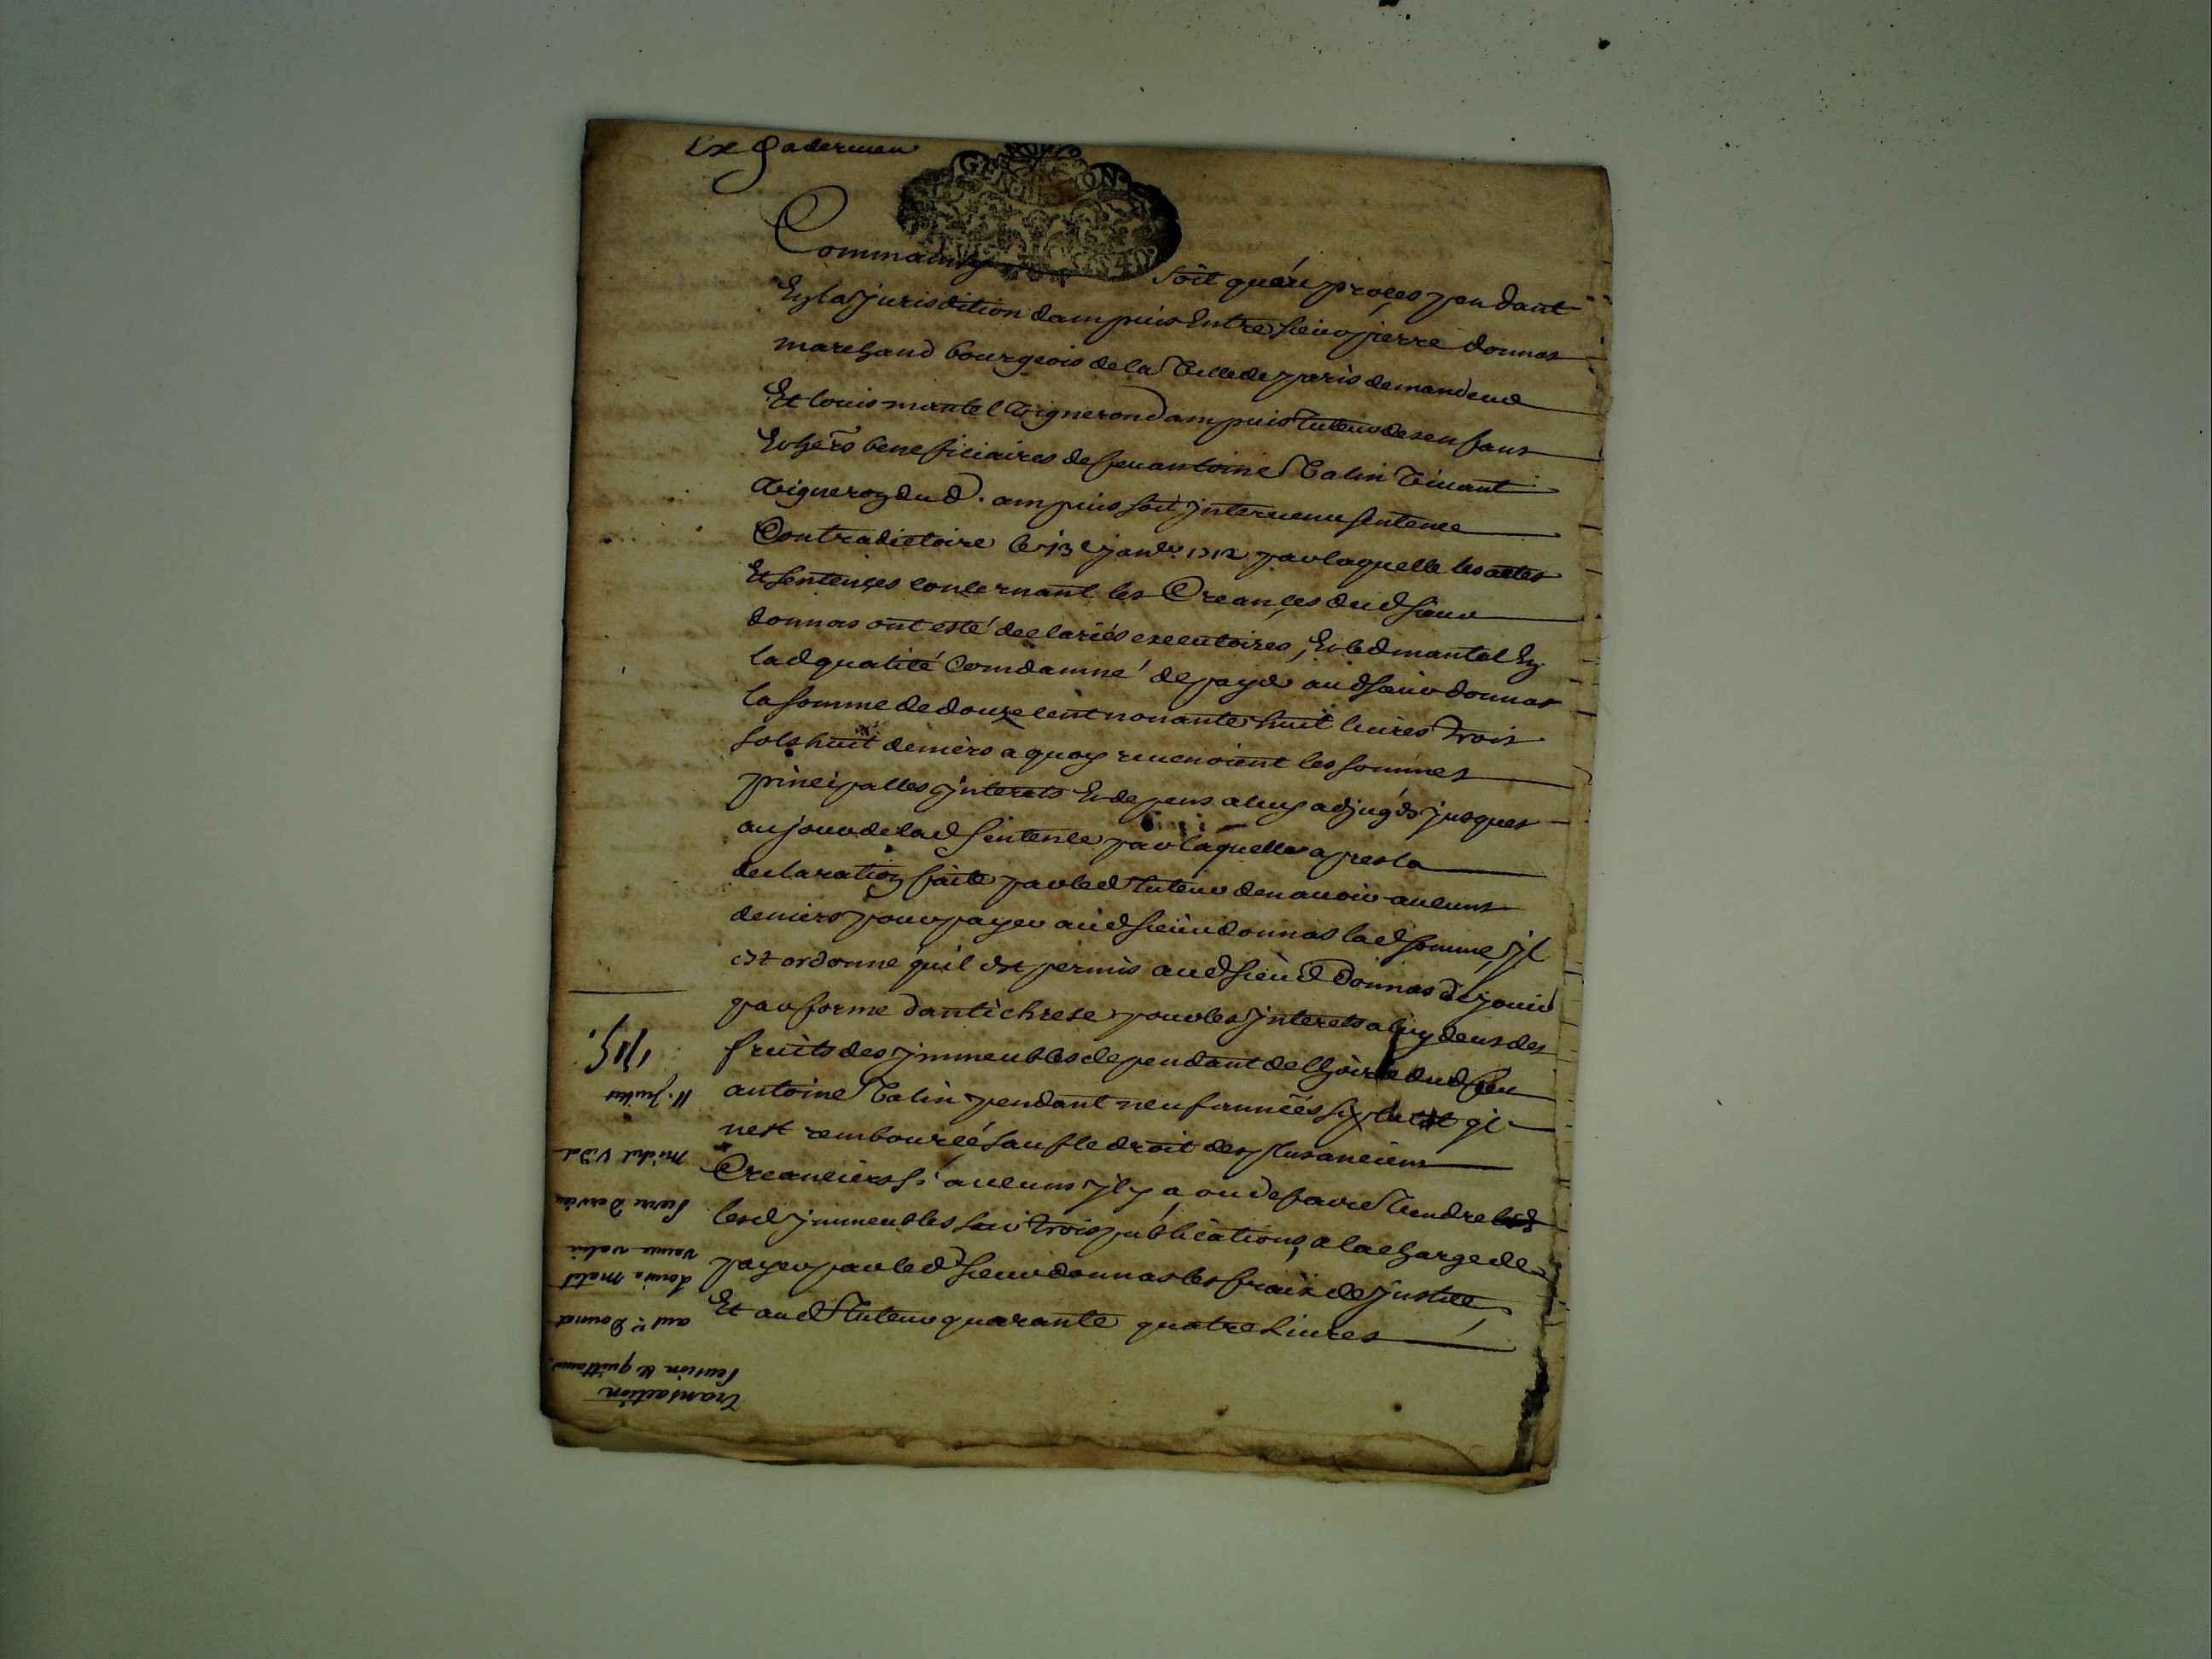 GE ON
Comme ainsy soit qu'en procés pendant
En la jurisdition dampuis Entre sieur pierre donnas
marchand bourgeois de la Ville de paris demandeur
Et louis mantel Vigneron dampuis tuteur des enfans
Et hers beneficiaires de feu antoine Valin Vivant
Vigneron du d. ampuis soit jntervenu sentence
Contradictoire le 13e janvr. 1712 par laquelle les actes
Et sentences concernant les Creances dud sieur
donnas ont esté declariés executoires, Et led mantel En
lad qualité Comdamné de payer aud sieur donnas
la somme de douze cent nonante huit livres trois
sols huit deniers a quoy revenoient les sommes
principalles jnterets Et depens a luy adjugés jusques
au jour de lad sentence par laquelle apres la
declaration faite par led tuteur den avoir aucuns
deniers pour payer aud sieur donnas lad somme, jl
est ordonne quil est permis aud sieur Donnas de jouir
par forme dantichrese pour les jnterets a luy deus des
fruits des jmmeubles dependant de lhoirie dud feu
antoine Valin pendant neuf années sy jl
nest remboursé sauf le droit des plus anciens
Creanciers si aucuns jl y a, ou de faire Vendre
lesd jmmeubles sur trois publications, a la charge de
payer par led sieur donnas les fraix de justice
Et aud tuteur quarante quatre Livres
Transaction
Cession & quittance
antne Donnat
Louis Matel
veuve valin
pierre Dervieu
Michel Vidal
11. Juillet
1715.